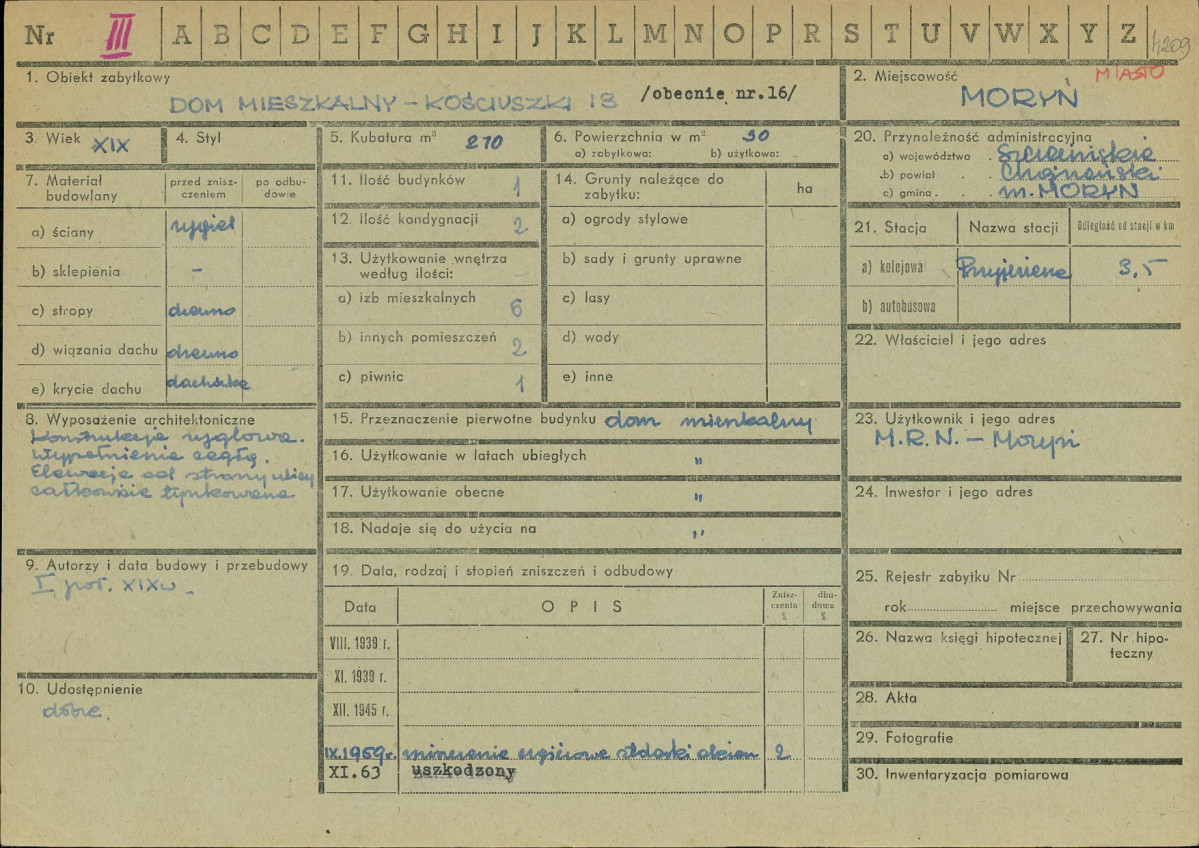 Nr III A B C D E F G H I J K L M N O P R S T U V W X Y Z 4209
1. Obiekt zabytkowy
DOM MIESZKALNY – KOŚCIUSZKI 18 /obecnie nr.16/
2. Miejscowość MIASTO
MORYŃ
3. Wiek XIX
4. Styl
5. Kubatura m³ 270
6. Powierzchnia w m² 90
a) zabytkowa: b) użytkowa:
20. Przynależność administracyjna
a) województwo . Szczecińskie
b) powiat . . Chojnański
c) gmina . . m. MORYŃ
7. Materiał budowlany
przed znisz-
czeniem
po odbu-
dowie
a) ściany rygiel
b) sklepienia –
c) stropy drewno
d) wiązania dachu drewno
e) krycie dachu dachówka
11. Ilość budynków 1
12. Ilość kondygnacji 2
13. Użytkowanie wnętrza
według ilości:
a) izb mieszkalnych 6
b) innych pomieszczeń 2
c) piwnic 1
14. Grunty należące do
zabytku:
ha
a) ogrody stylowe
b) sady i grunty uprawne
c) lasy
d) wody
e) inne
21. Stacja Nazwa stacji Odległość od stacji w km
a) kolejowa Przyjezierze 3,5
b) autobusowa
22. Właściciel i jego adres
8. Wyposażenie architektoniczne
Konstrukcja ryglowa.
Wypełnienie cegłą.
Elewacja od strony ulicy
całkowicie tynkowana
15. Przeznaczenie pierwotne budynku dom mieszkalny
16. Użytkowanie w latach ubiegłych "
17. Użytkowanie obecne "
18. Nadaje się do użycia na "
23. Użytkownik i jego adres
M.R.N. – Moryń
24. Inwestor i jego adres
9. Autorzy i data budowy i przebudowy
I poł. XIXw.
10. Udostępnienie
dobre.
19. Data, rodzaj i stopień zniszczeń i odbudowy
Data OPIS
Znisz-
czenia
%
dbu-
dowa
%
VIII. 1939 r.
XI. 1939 r.
XII. 1945 r.
IX.1959r. 2
XI.63 uszkodzony
25. Rejestr zabytku Nr
rok miejsce przechowywania
26. Nazwa księgi hipotecznej
27. Nr hipo-
teczny
28. Akta
29. Fotografie
30. Inwentaryzacja pomiarowa